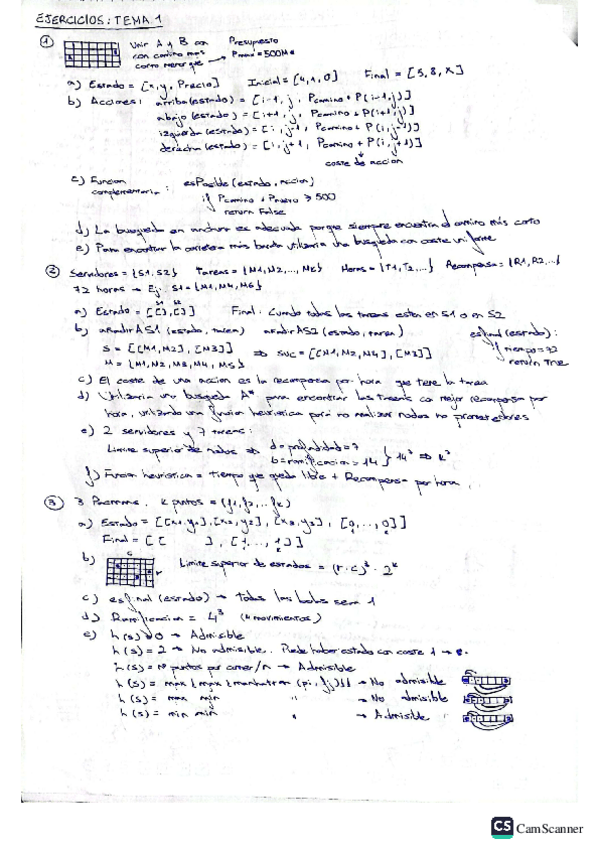 EJERCICIOS: TEMA 1
① Unir A y B con Presupuesto
con camino más Pmax = 500M€
corto menor que
a) Estado = [x, y, Precio] Inicial = [4,1,0] Final = [5,8,X]
b) Acciones: arriba(estado) = [i-1, j, Pcamino + P(i-1,j)]
abajo(estado) = [i+1, j, Pcamino + P(i+1,j)]
izquierda(estado) = [i, j-1, Pcamino + P(i,j-1)]
derecha(estado) = [i, j+1, Pcamino + P(i,j+1)]
coste de acción
c) Función
complementaria: esPosible(estado, accion)
if Pcamino + Pnuevo > 500
return False
d) La busqueda en anchura es adecuada porque siempre encuentra el camino más corto
e) Para encontrar la carretera más barata utilizaria una busqueda con coste uniforme
② Servidores = {S1, S2} Tareas = {M1, M2, ..., MK} Horas = {T1, T2, ...} Recompensa = {R1, R2, ...}
72 horas → Ej. S1 = {M1, M4, M6}
S1 S2
a) Estado = [[], []] Final: Cuando todas las tareas esten en S1 o en S2
b) añadirAS1 (estado, tarea) añadirAS2 (estado, tarea) esfinal(estado):
S = [[M1, M2], [M3]] ⇒ suc = [[M1, M2, M4], [M3]] if tiempo = 72
M = {M1, M2, M3, M4, M5} return True
c) El coste de una acción es la recompensa por hora que tiene la tarea
d) Utilizaria una busqueda A* para encontrar las tareas con mejor recompensa por
hora, utilizando una función heurística para no realizar nodos no prometedores
e) 2 servidores y 7 tareas:
Limite superior de nodos ⇒ d = profundidad = 7
b = ramificacion > 14 } 14⁷ ⇒ K⁷
f) Función heurística = Tiempo que queda libre + Recompensa por hora
③ 3 Pacmans. K puntos = (f1, f2, ... fk)
a) Estado = [[x1,y1], [x2,y2], [x3,y3], [0, ..., 0]]
Final = [[ ], [1, ..., 1]]
b) c r Limite superior de estados = (r·c)³ · 2ᵏ
c) esfinal (estado) → Todas las bolas sean 1
d) Ramificacion = 4³ (4 movimientos)
e) h(s) = 0 → Admisible
h(s) = 2 → No admisible. Puede haber estado con coste 1 →
h(s) = Nº puntos por comer/n → Admisible
h(s) = max {max {manhattan (pi, fj)}} → No admisible
h(s) = max min " → No admisible
h(s) = min min " → Admisible
CS CamScanner